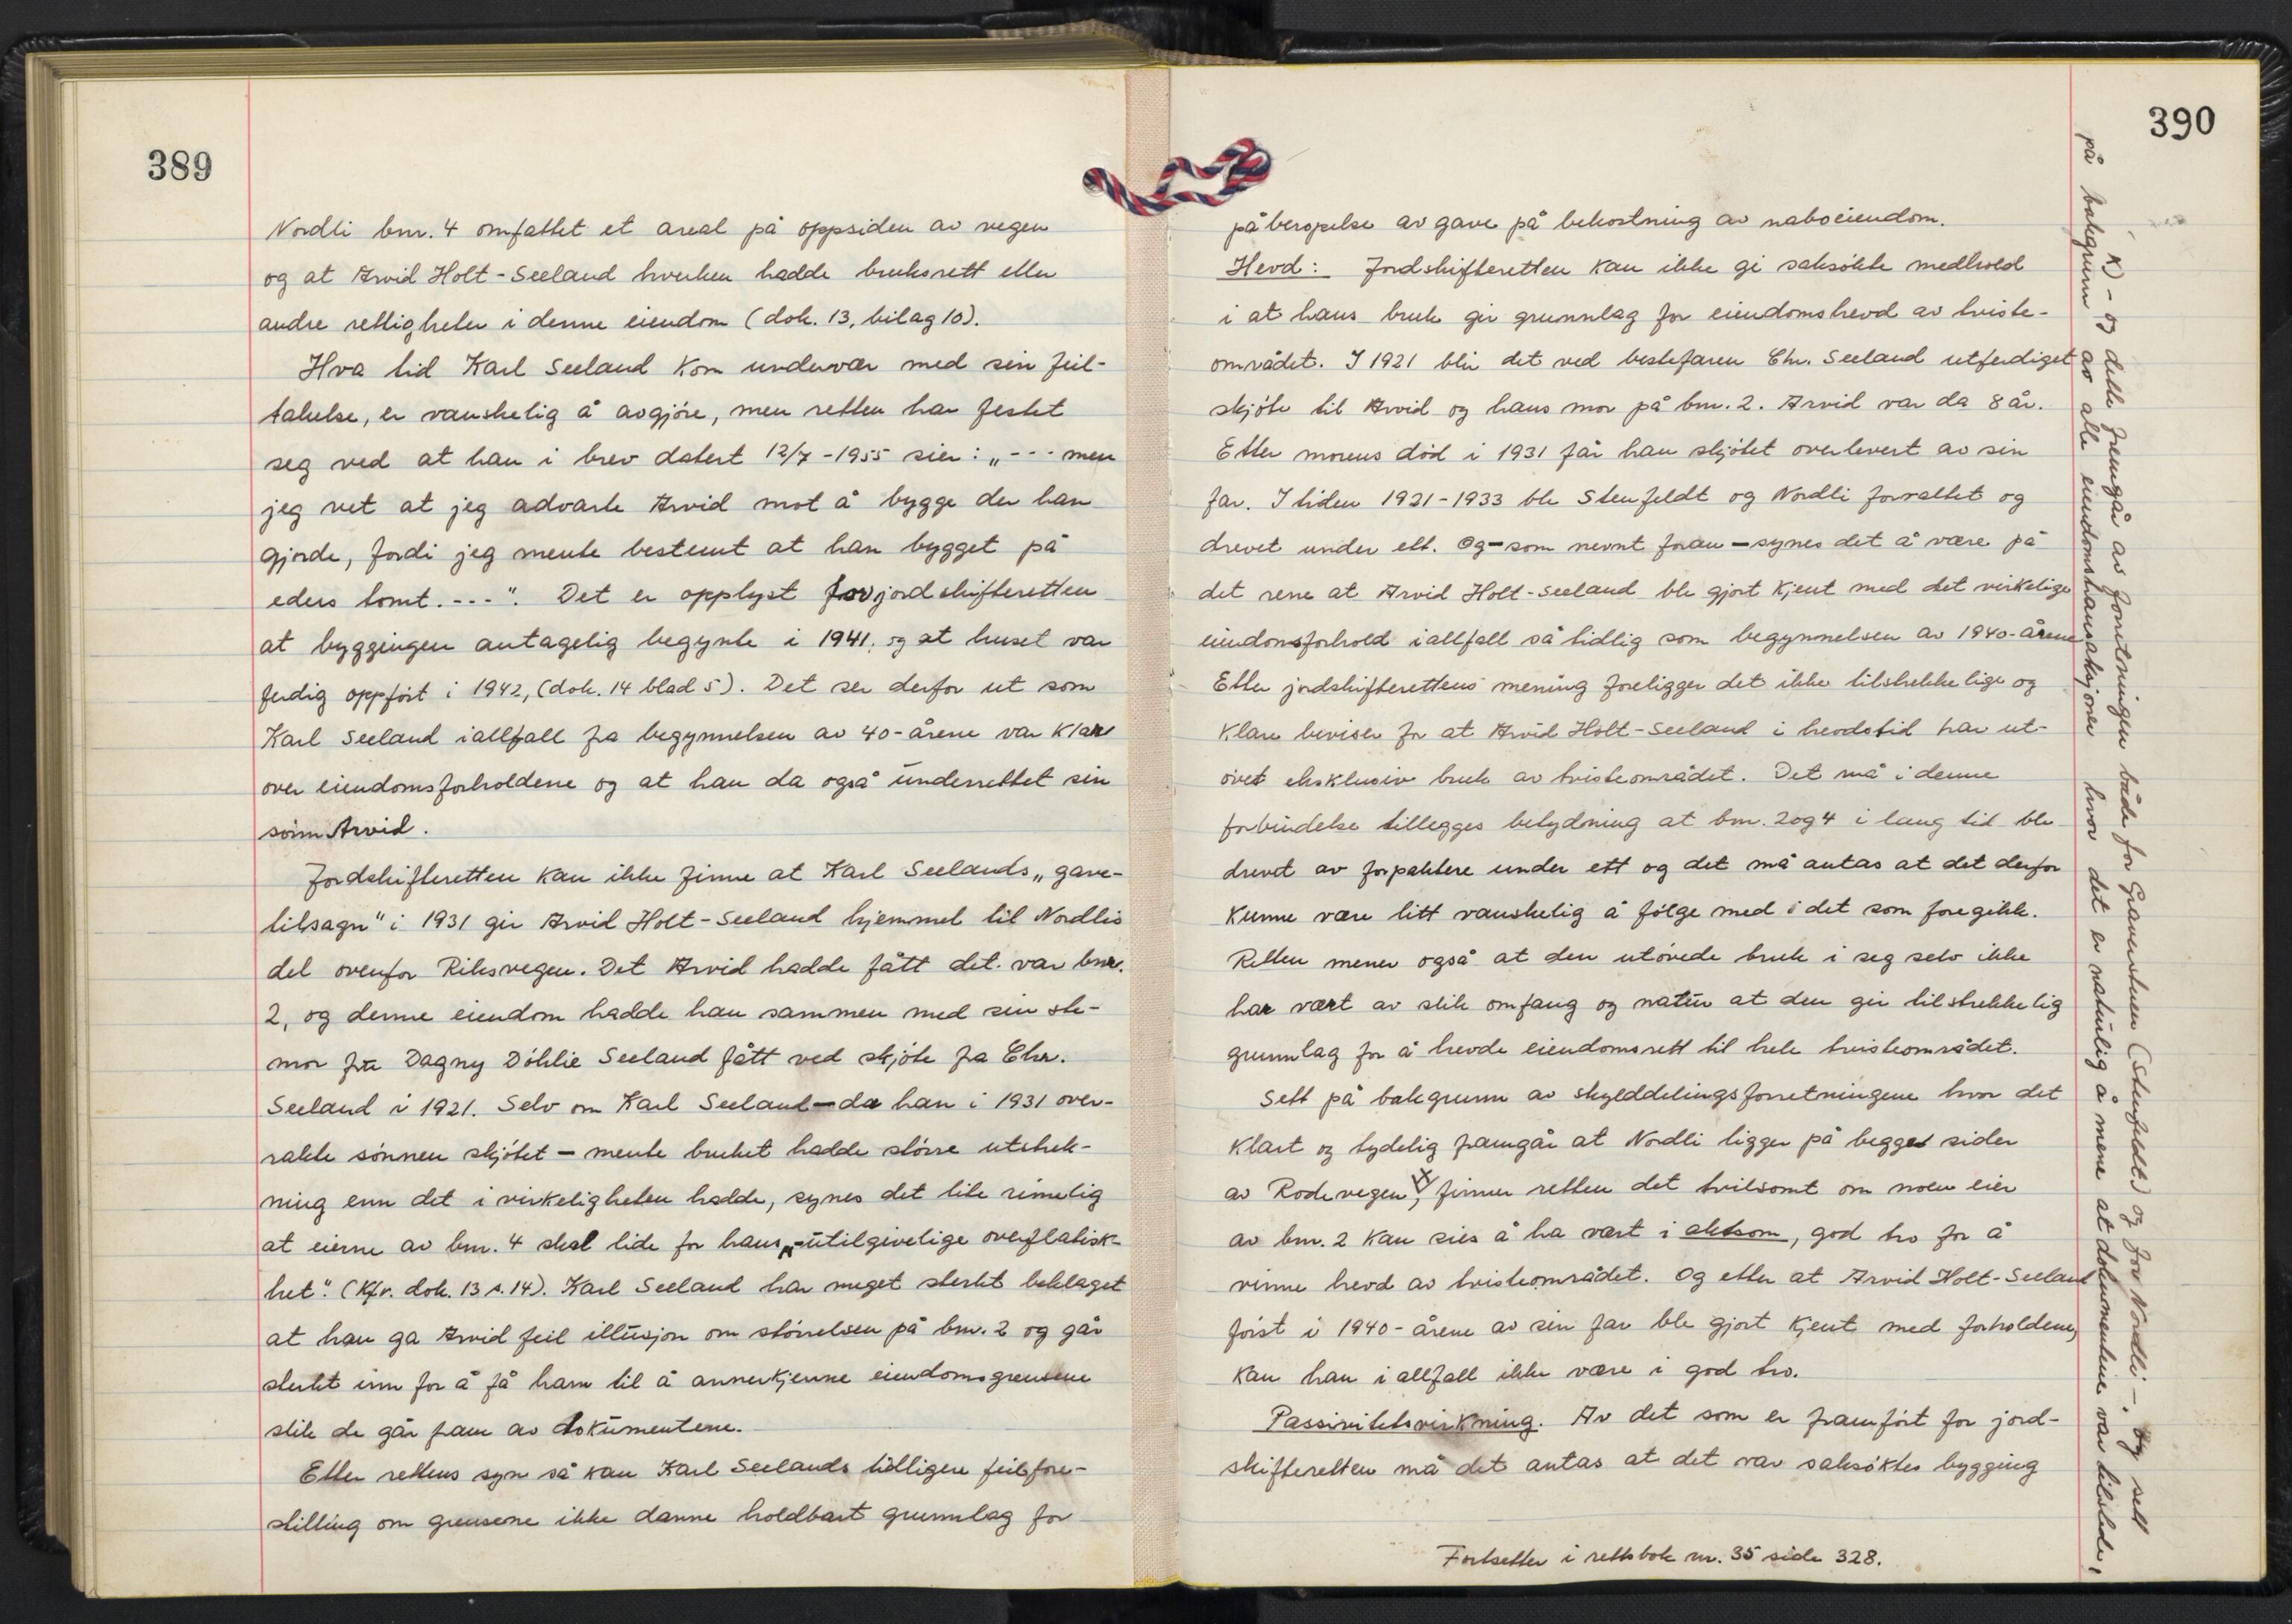 389
Nordli bnr. 4 omfattet et areal på oppsiden av vegen
og at Arvid Holt-Seeland hverken hadde bruksrett eller
andre rettigheter i denne eiendom (dok. 13, bilag 10).
Hva tid Karl Seeland kom undervær med sin feil-
takelse, er vanskelig å avgjøre, men retten har festet
seg ved at han i brev datert 12/7-1955 sier: „--- men
jeg vet at jeg advarte Arvid mot å bygge der han
gjorde, fordi jeg mente bestemt at han bygget på
eders tomt.---". Det er opplyst for jordskifteretten
at byggingen antagelig begynte i 1941, og at huset var
ferdig oppført i 1942, (dok. 14 blad 5). Det ser derfor ut som
Karl Seeland iallfall fra begynnelsen av 40-årene var klar
over eiendomsforholdene og at han da også underrettet sin
sønn Arvid.
Jordskifteretten kan ikke finne at Karl Seelands „gave-
tilsagn" i 1931 gir Arvid Holt-Seeland hjemmel til Nordlis
del ovenfor Riksvegen. Det Arvid hadde fått det var bnr.
2, og denne eiendom hadde han sammen med sin ste-
mor fru Dagny Döhlie Seeland fått ved skjøte fra Chr.
Seeland i 1921. Selv om Karl Seeland – da han i 1931 over-
rakte sønnen skjøtet – mente bruket hadde større utstrek-
ning enn det i virkeligheten hadde, synes det lite rimelig
at eierne av bnr. 4 skal lide for hans „utilgivelige overflatisk-
het". (Kfr. dok. 13 s. 14). Karl Seeland har meget sterkt beklaget
at han ga Arvid feil illusjon om størrelsen på bnr. 2 og går
sterkt inn for å få ham til å annerkjenne eiendomsgrensene
slik de går fram av dokumentene.
Etter rettens syn så kan Karl Seelands tidligere feilfore-
stilling om grensene ikke danne holdbart grunnlag for
390
påberopelse av gave på bekostning av naboeiendom.
Hevd: Jordskifteretten kan ikke gi saksøkte medhold
i at hans bruk gir grunnlag for eiendomshevd av tviste-
området. I 1921 blir det ved bestefaren Chr. Seeland utferdiget
skjøte til Arvid og hans mor på bnr. 2. Arvid var da 8 år.
Etter morens död i 1931 får han skjøtet overlevert av sin
far. I tiden 1921-1933 ble Stenfeldt og Nordli forvaltet og
drevet under ett. Og – som nevnt foran – synes det å være på
det rene at Arvid Holt-Seeland ble gjort kjent med det virkelige
eiendomsforhold iallfall så tidlig som begynnelsen av 1940-årene
Etter jordskifterettens mening foreligger det ikke tilstrekkelige og
klare beviser for at Arvid Holt-Seeland i hevdstid har ut-
øvet eksklusiv bruk av tvisteområdet. Det må i denne
forbindelse tillegges betydning at bnr. 2 og 4 i lang tid ble
drevet av forpaktere under ett og det må antas at det derfor
kunne være litt vanskelig å følge med i det som foregikk.
Retten mener også at den utøvede bruk i seg selv ikke
har vært av slik omfang og natur at den gir tilstrekkelig
grunnlag for å hevde eiendomsrett til hele tvisteområdet.
Sett på bakgrunn av skylddelingsforretningene hvor det
klart og tydelig framgår at Nordli ligger på begge sider
av Rodevegen x), finner retten det tvilsomt om noen eier
av bnr. 2 kan sies å ha vært i aktsom, god tro for å
vinne hevd av tvisteområdet. Og etter at Arvid Holt-Seeland
først i 1940-årene av sin far ble gjort kjent med forholdene,
kan han iallfall ikke være i god tro.
Passivitetsvirkning. Av det som er framført for jord-
skifteretten må det antas at det var saksøktes bygging
Fortsetter i rettsbok nr. 35 side 328.
x) - og dette fremgår av forretningen både for Gravenstuen (Stenfeldt) og for Nordli -. Og sett
på bakgrunn av alle eiendomstransaksjoner hvor det er naturlig å mene at dokumentene var tilstede,